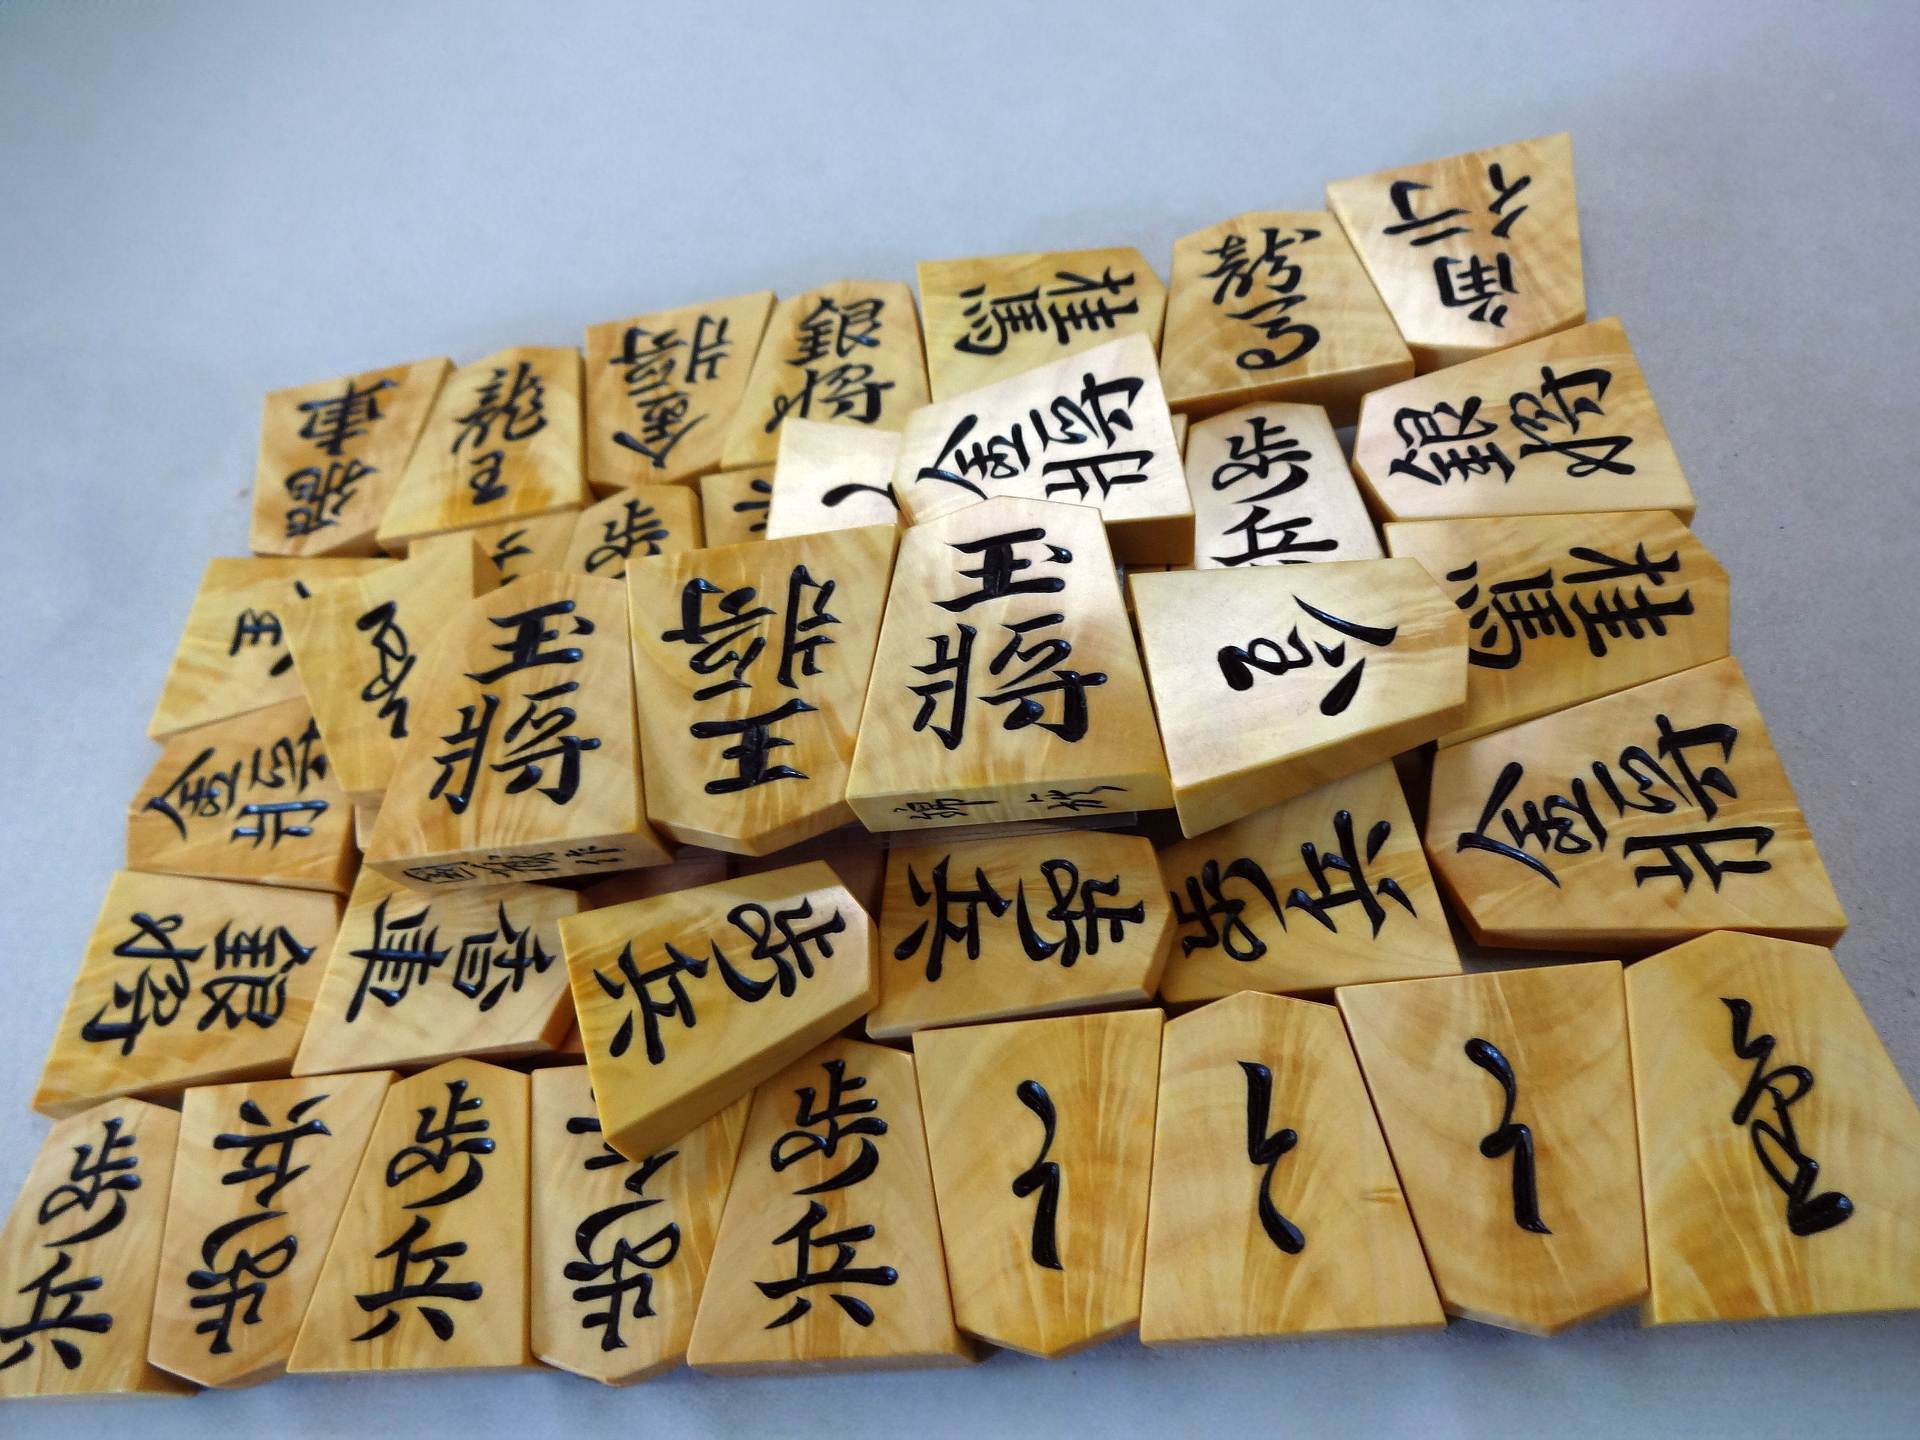 角行
龍馬
桂馬
銀将
金将
龍王
飛車
銀将
歩兵
金将
歩
桂馬
玉将
王将
玉将
金将
金将
歩兵
歩兵
歩兵
香車
銀将
歩兵
歩兵
歩兵
歩兵
と
と
と